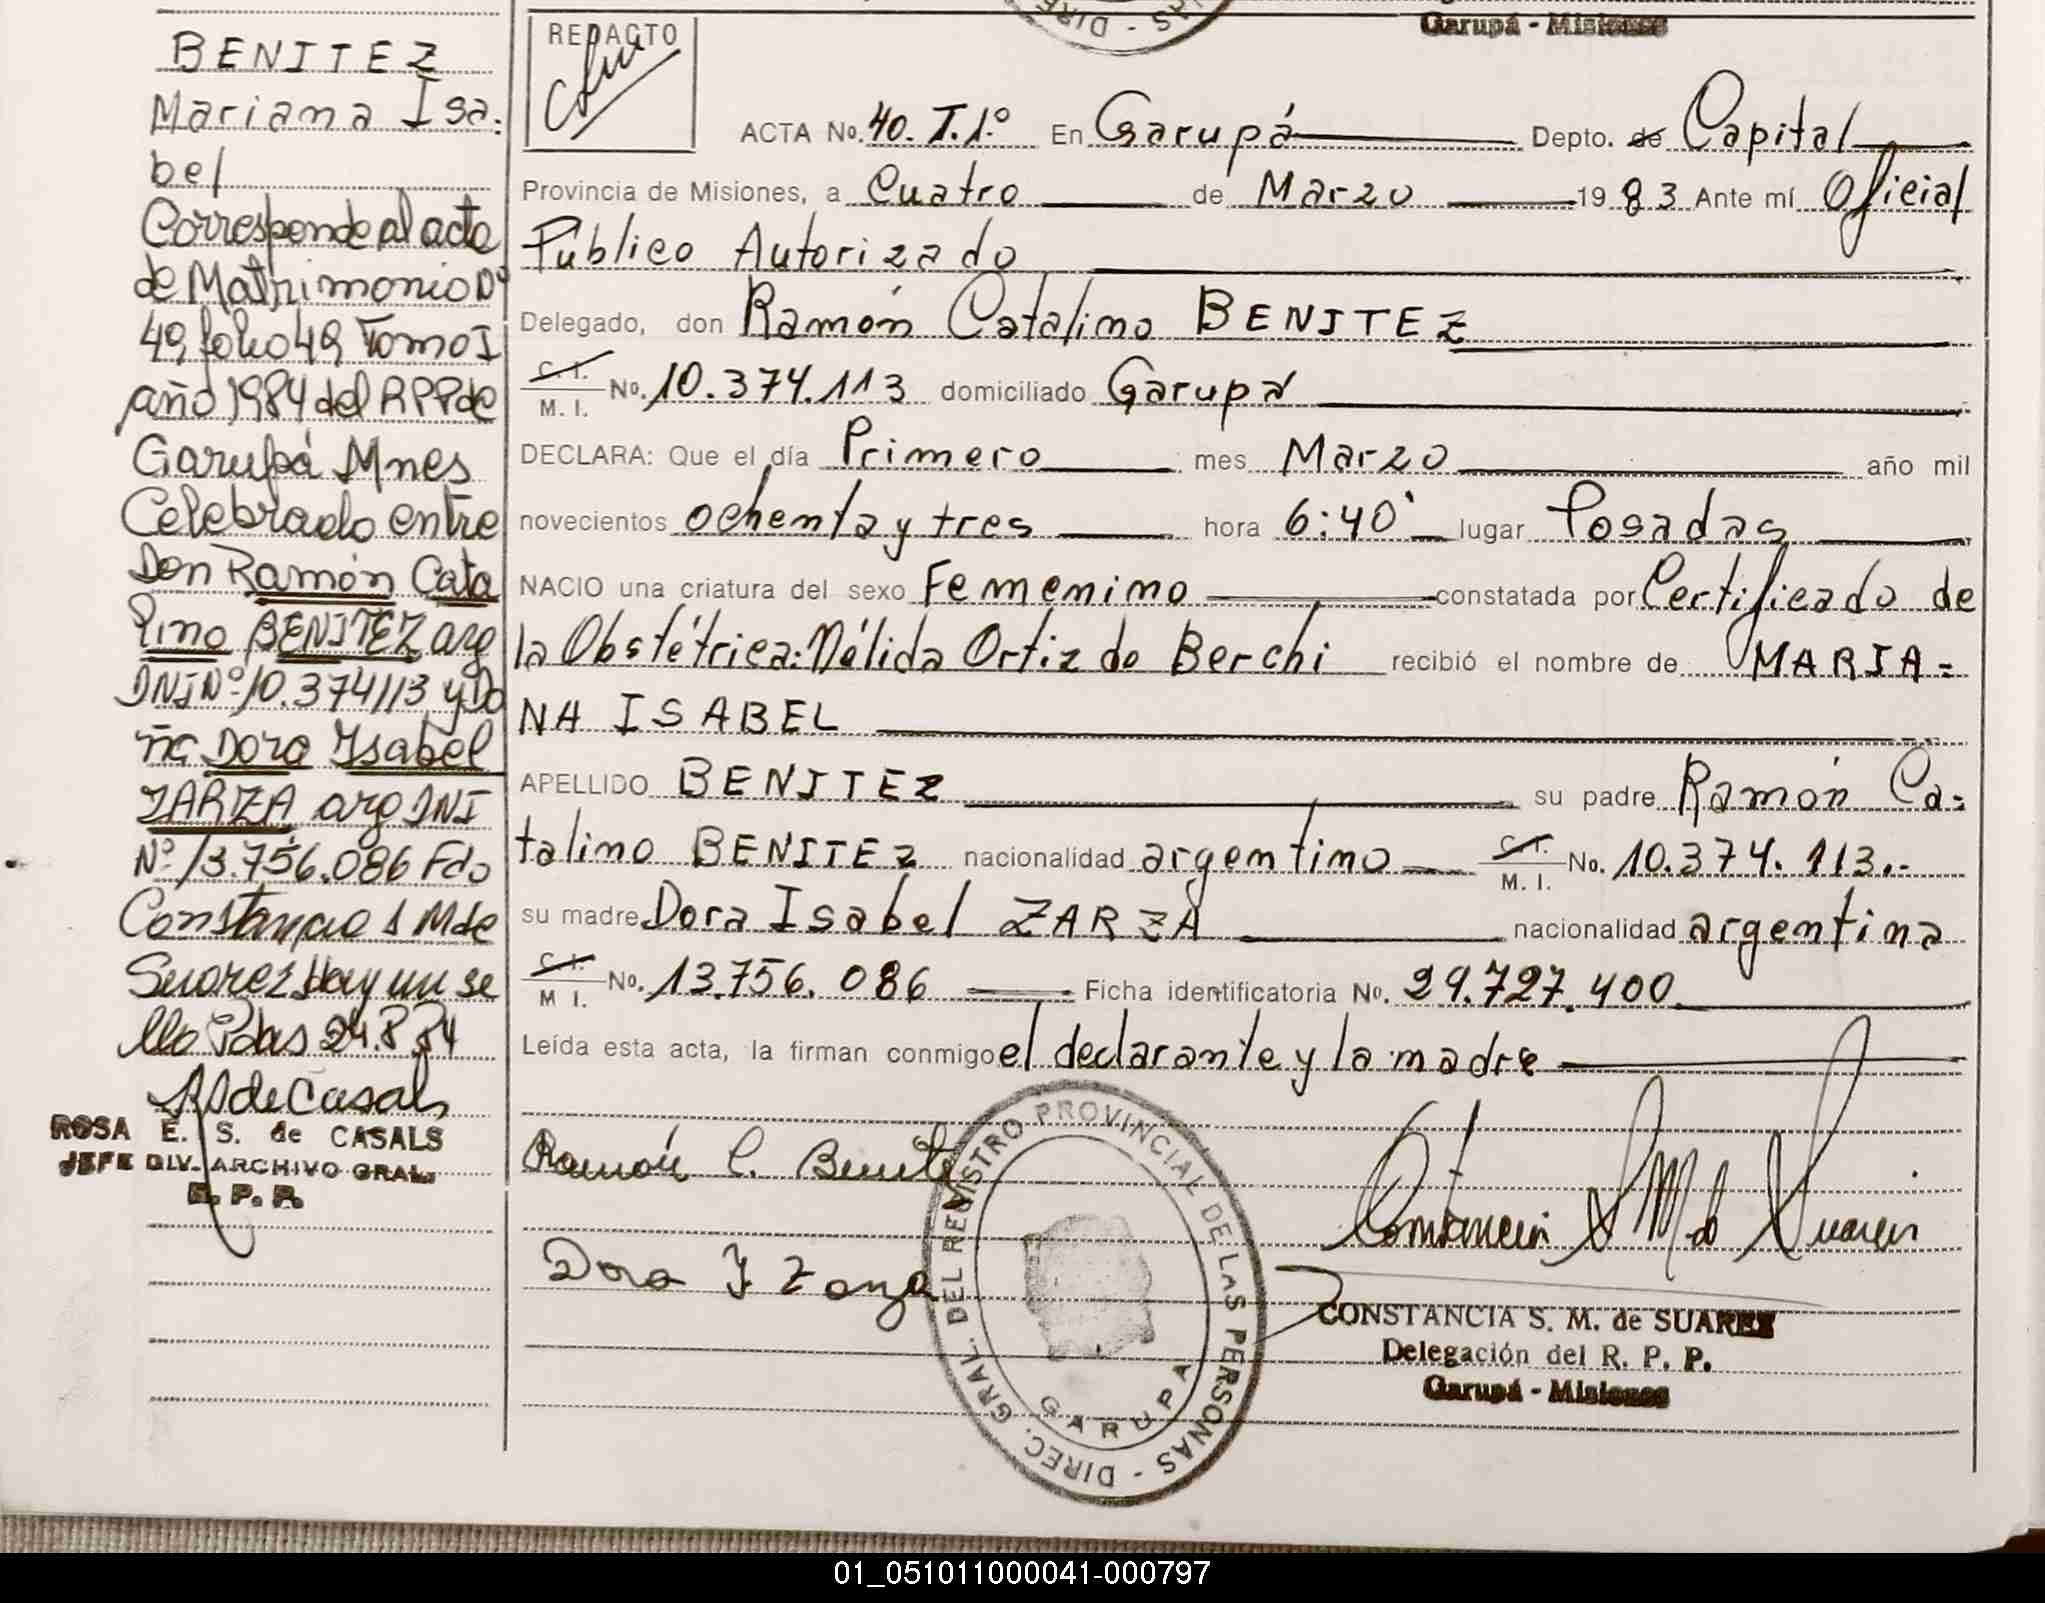 Garupá - Misiones
BENITEZ
Mariana Isa-
bel
Corresponde al acta
de Matrimonio Nº
49, folio 49, Tomo I
año 1984 del RPP de
Garupá Mnes
Celebrado entre
Don Ramón Cata
lino BENITEZ arg
DNI Nº 10.374113 y Do
ña Dora Isabel
ZARZA arg DNI
Nº 13.756.086 Fdo
Constancia S M de
Suarez Hay un se
llo Pdas 24.8.84
RS de Casals
ROSA E. S. de CASALS
JEFE DIV. ARCHIVO GRAL.
R. P. P.
REDACTO
ACTA No. 40. T.1º En Garupá Depto. de Capital
Provincia de Misiones, a Cuatro de Marzo 1983 Ante mí Oficial
Público Autorizado
Delegado, don Ramón Catalino BENITEZ
C. I.
M. I. No. 10.374.113 domiciliado Garupá
DECLARA: Que el día Primero mes Marzo año mil
novecientos ochenta y tres hora 6:40' lugar Posadas
NACIO una criatura del sexo Femenino constatada por Certificado de
la Obstétrica: Nélida Ortiz de Berchi recibió el nombre de MARIA=
NA ISABEL
APELLIDO BENITEZ su padre Ramón Ca=
talino BENITEZ nacionalidad argentino C. I.
M. I. No. 10.374.113.-
su madre Dora Isabel ZARZA nacionalidad argentina
C. I.
M I. No. 13.756.086 Ficha identificatoria No. 29.727.400
Leída esta acta, la firman conmigo el declarante y la madre
Ramón C. Benite
Dora I Zarza
Constancia S M de Suarez
CONSTANCIA S. M. de SUAREZ
Delegación del R. P. P.
Garupá - Misiones
DIREC. GRAL. DEL REGISTRO PROVINCIAL DE LAS PERSONAS -
GARUPA
01_051011000041-000797